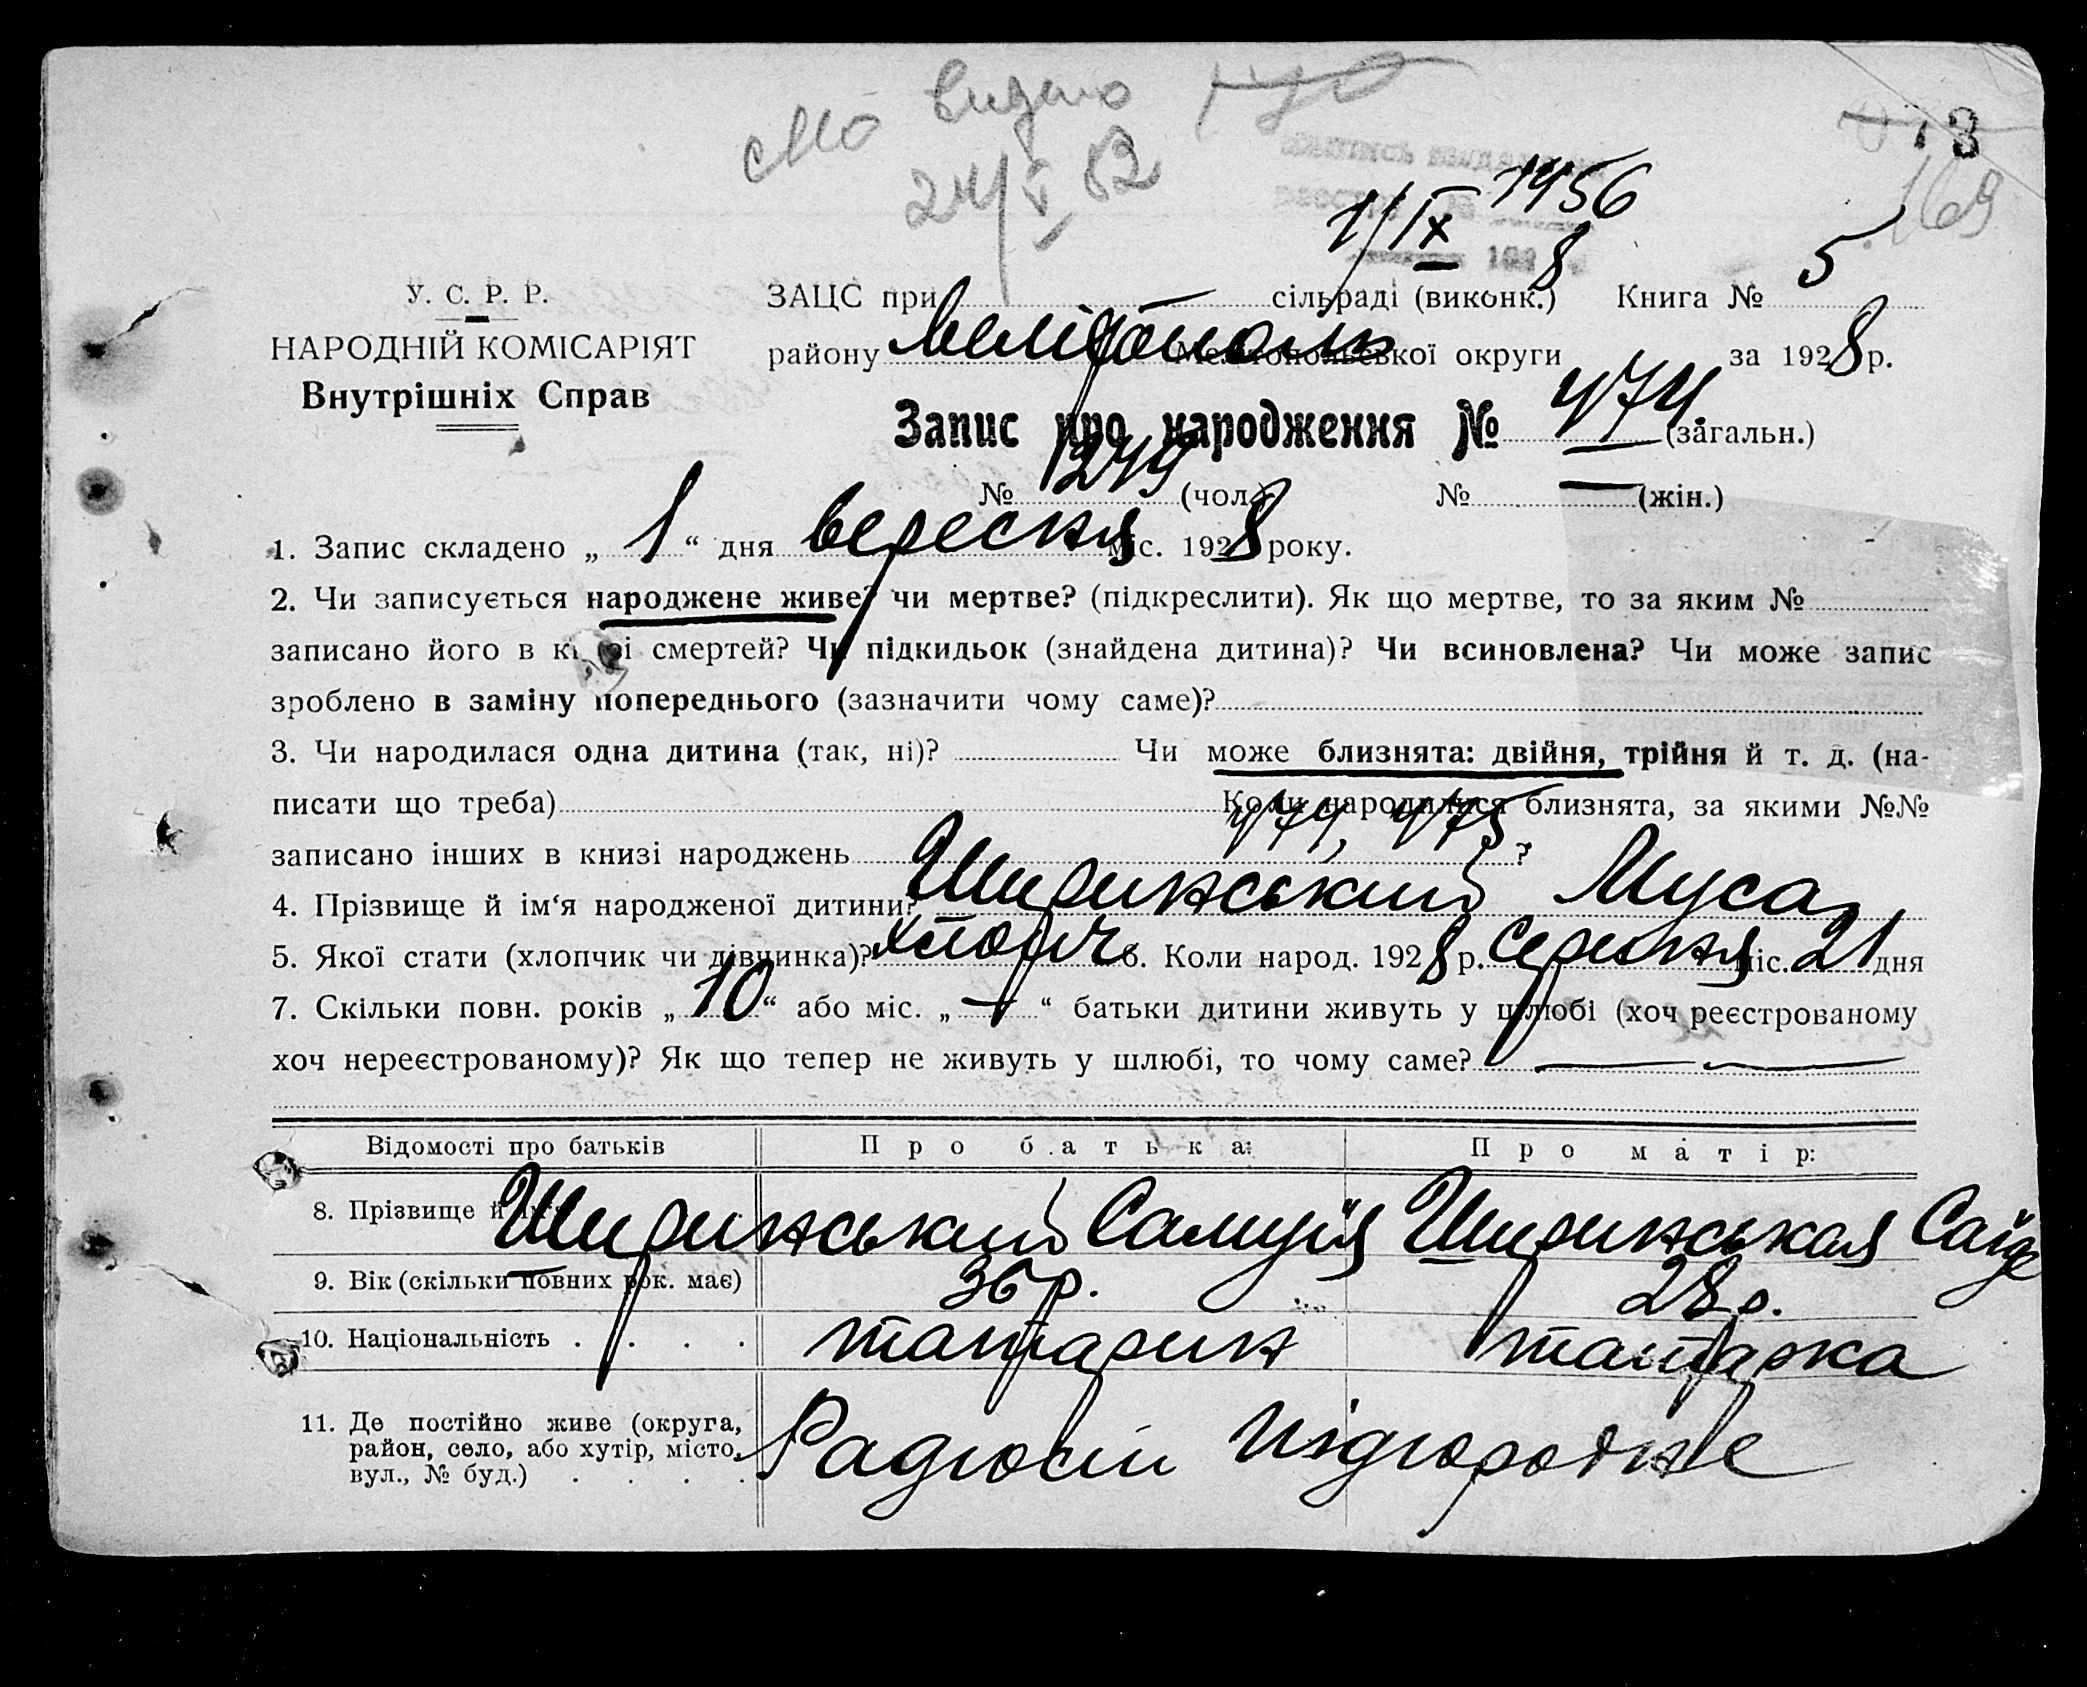 Мо видано
24/V 52
73
169
1/IX 1956
8
У. С. Р. Р.
НАРОДНІЙ КОМІСАРІЯТ
Внутрішніх Справ
ЗАЦС при сільраді (виконк.) Книга № 5
району Мелітополь Мелітопольської округи за 1928 р.
Запис про народження № 474 (загальн.)
№ 249 (чол.) № — (жін.)
1. Запис складено „ 1 “ дня вересня міс. 1928 року.
2. Чи записується народжене живе? чи мертве? (підкреслити). Як що мертве, то за яким №
записано його в книзі смертей? Чи підкидьок (знайдена дитина)? Чи всиновлена? Чи може запис
зроблено в заміну попереднього (зазначити чому саме)?
3. Чи народилася одна дитина (так, ні)? Чи може близнята: двійня, трійня й т. д. (на-
писати що треба) Коли народилися близнята, за якими №№
записано інших в книзі народжень 474, 475 ?
4. Прізвище й ім‘я народженої дитини? Ширинський Муса
5. Якої стати (хлопчик чи дівчинка)? хлопч 6. Коли народ. 1928 р. серпня міс. 21 дня
7. Скільки повн. років „ 10 “ або міс. „ — “ батьки дитини живуть у шлюбі (хоч реєстрованому
хоч нереєстрованому)? Як що тепер не живуть у шлюбі, то чому саме? — —
Відомості про батьків Про батька: Про матір:
8. Прізвище й ім‘я Ширинський Самуїл Ширинськая Саїде
9. Вік (скільки повних рок. має) 36 р. 28 р.
10. Національність . . . . татарин татарка
11. Де постійно живе (округа,
район, село, або хутір, місто,
вул., № буд.) . . . . Радгосп Підгородне